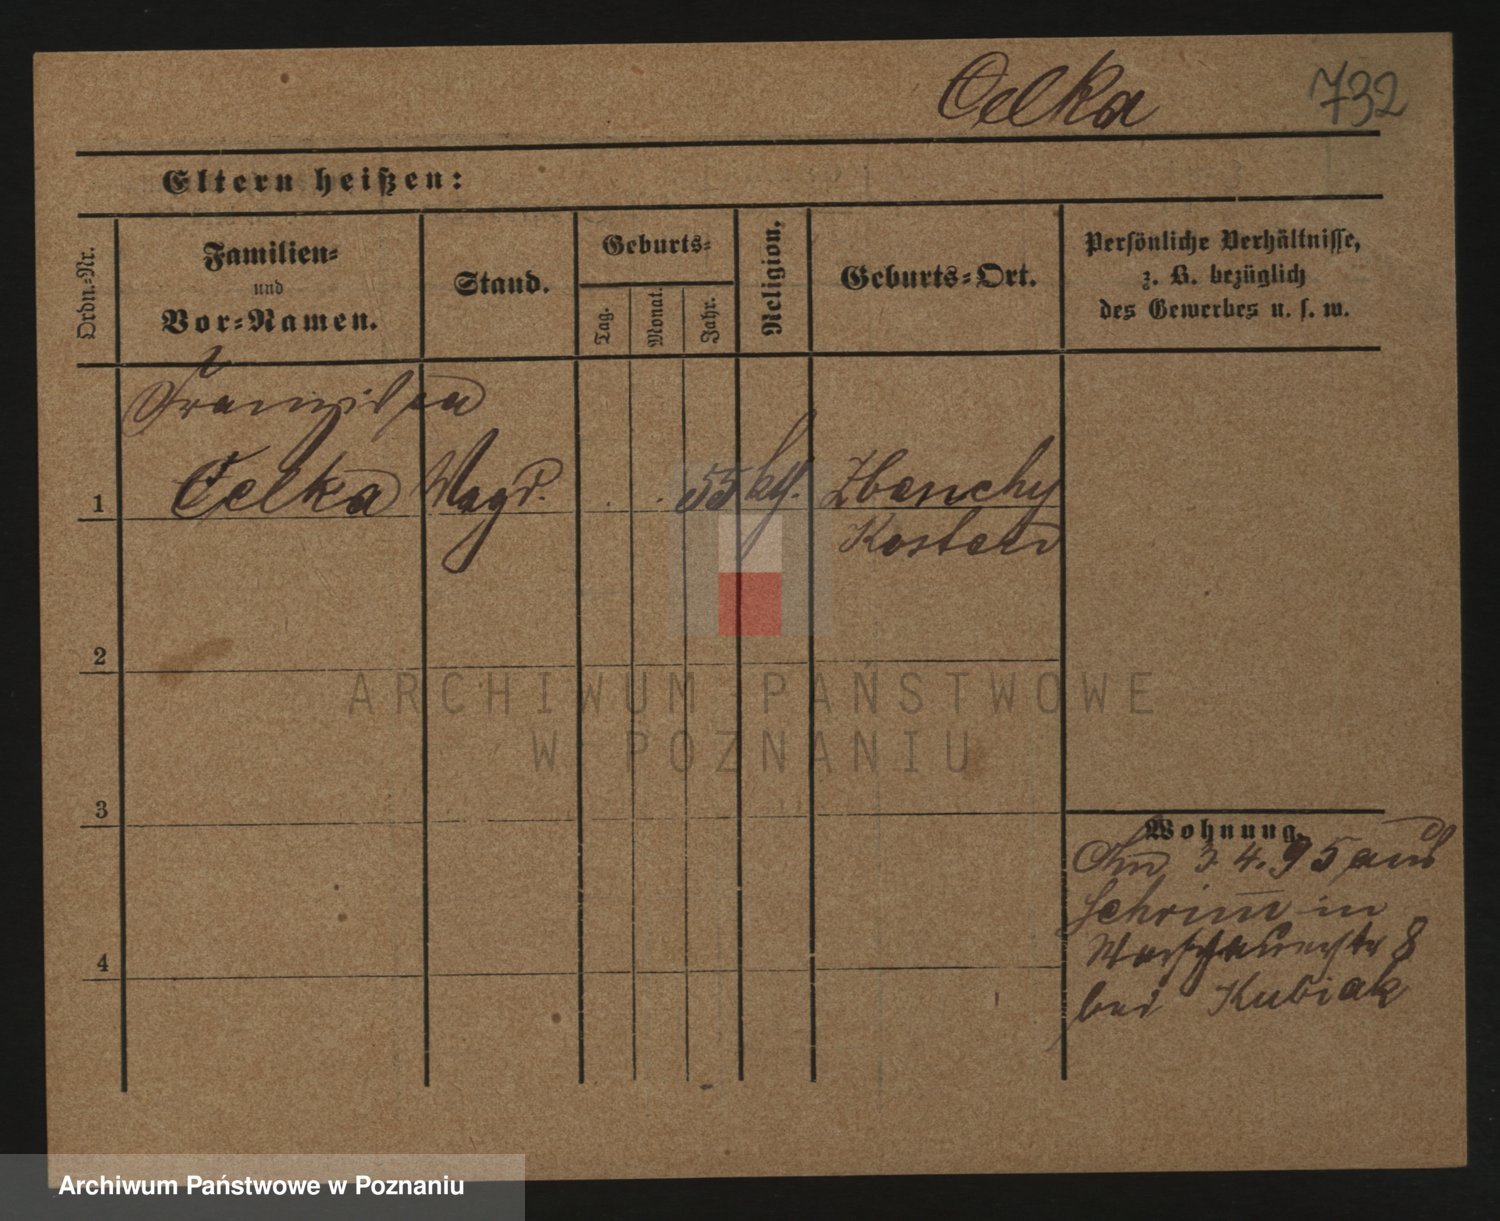 Celka 732
Eltern heißen:
Ordn.-Nr.
Familien-
und
Vor-Namen.
Stand.
Geburts-
Tag.
Monat.
Jahr.
Religion.
Geburts-Ort.
Persönliche Verhältnisse,
z. B. bezüglich
des Gewerbes u. s. w.
Franziska
1 Celka Magd. . . 55 kth. Zbenchy
Kosten
2
3
4
Wohnung.
Am 3.4.95 aus
Schrimm in
Warschauerstr 8
bei Kubiak
ARCHIWUM PAŃSTWOWE
W POZNANIU
Archiwum Państwowe w Poznaniu